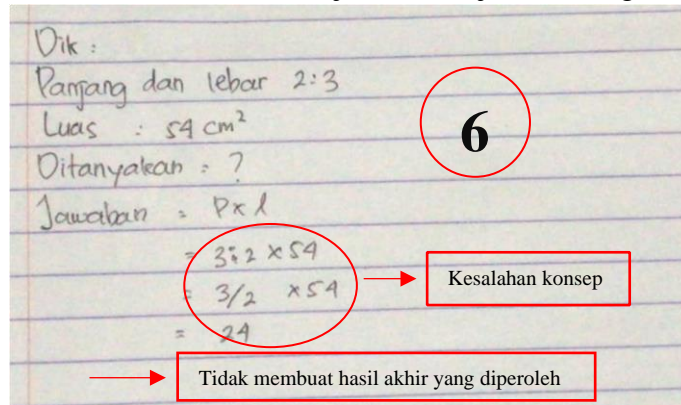 Dik :
Panjang dan lebar 2:3
Luas : 54 cm²
6
Ditanyakan : ?
Jawaban = P x l
= 3:2 x 54
Kesalahan konsep
= 3/2 x 54
= 24
Tidak membuat hasil akhir yang diperoleh